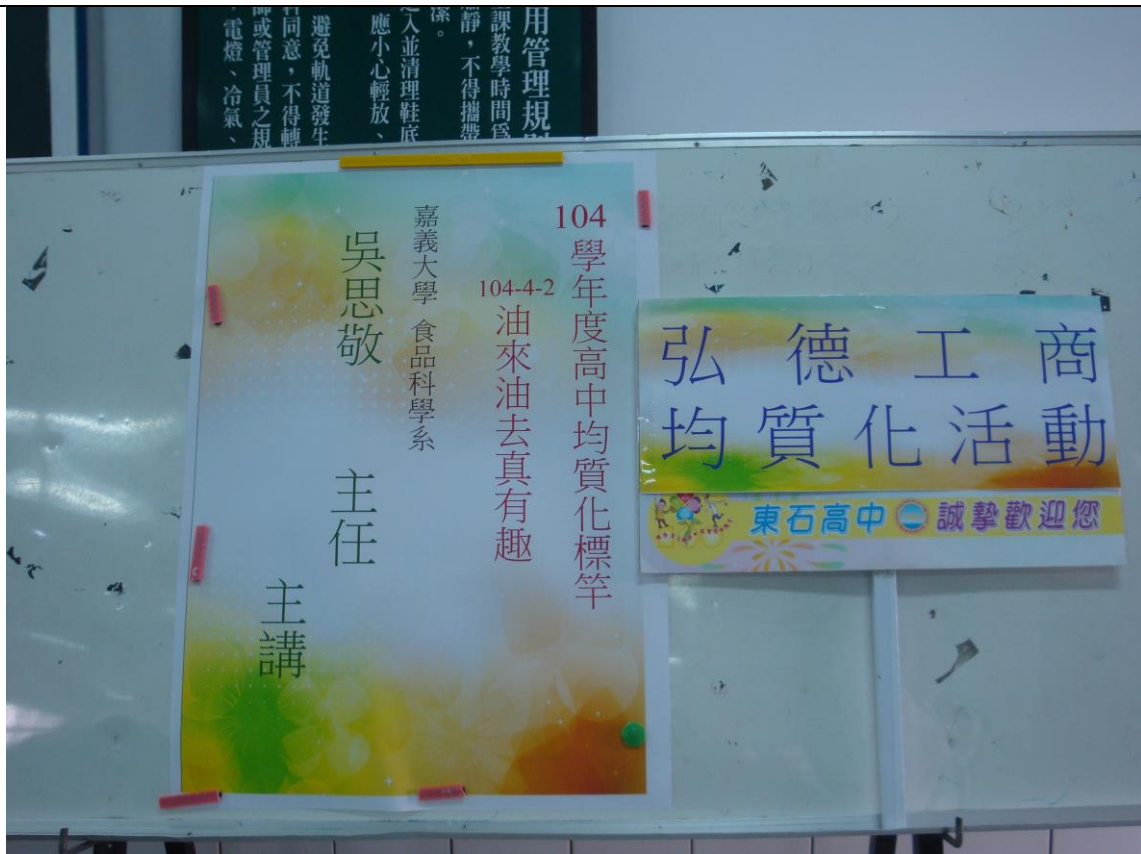 用管理規則
課教學時間為
靜，不得攜帶
潔。
入並清理鞋底
應小心輕放、
避免軌道發生
同意，不得轉
師或管理員之規
，電燈、冷氣、
104學年度高中均質化標竿
104-4-2油來油去真有趣
嘉義大學 食品科學系
吳思敬 主任
主講
弘德工商
均質化活動
東石高中 誠摯歡迎您